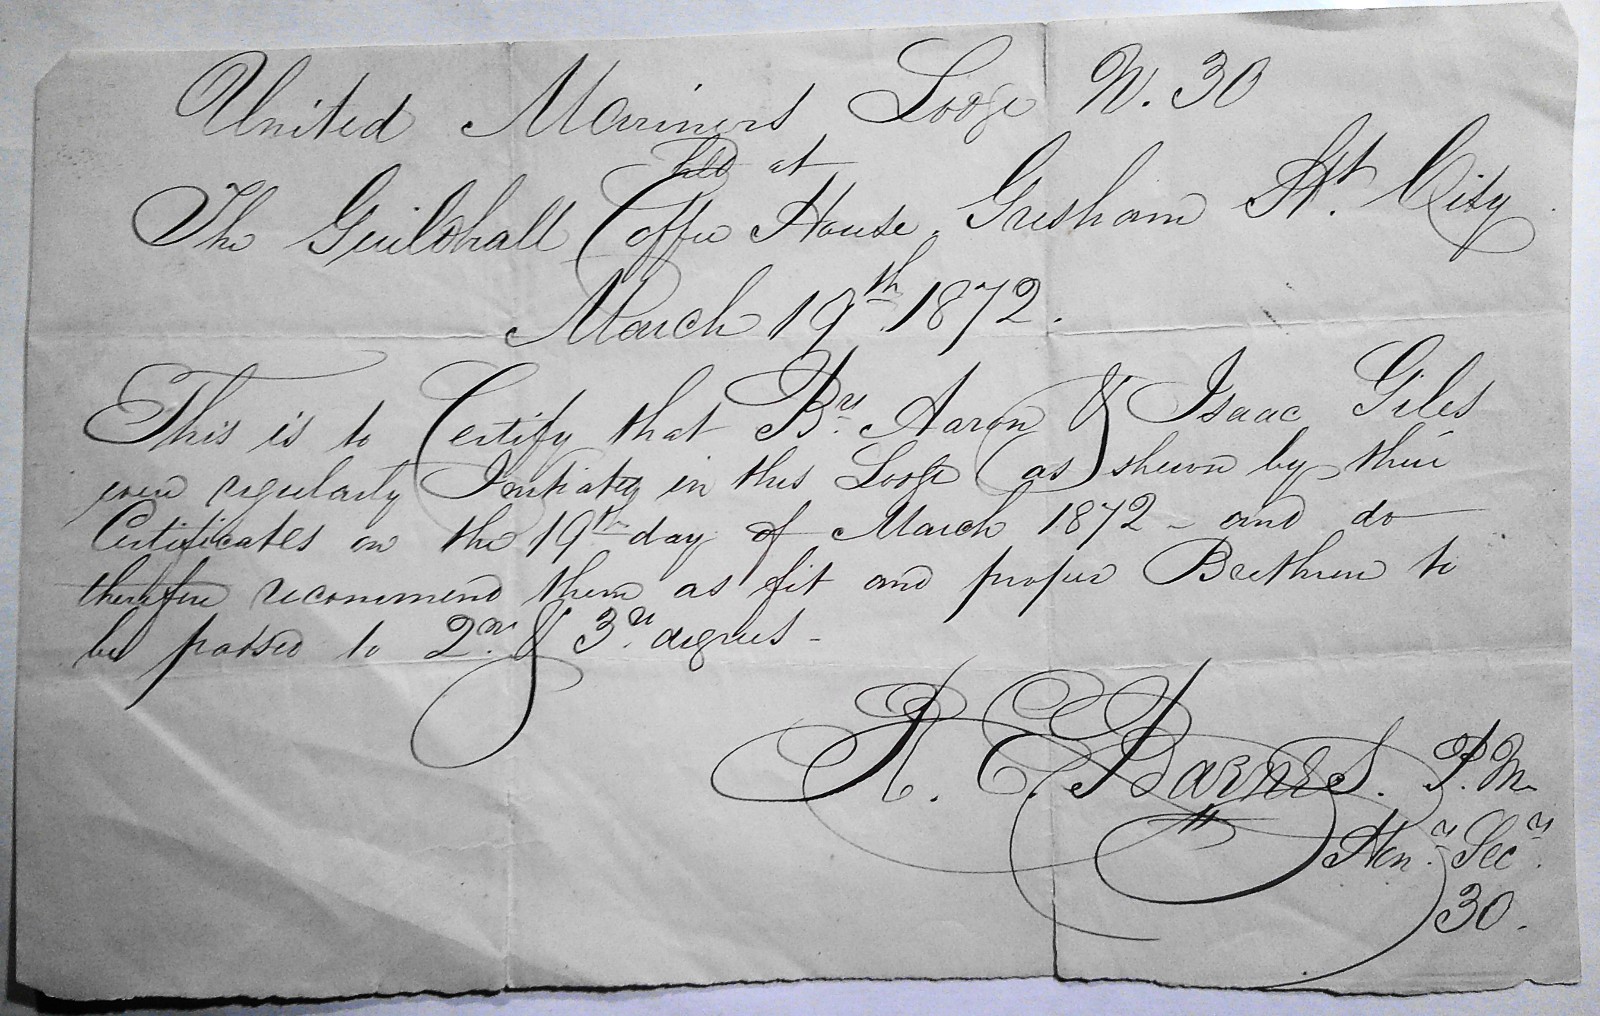 United Mariners Lodge N. 30
held at
The Guildhall Coffee House, Gresham St. City
March 19th 1872.
This is to Certify that Br. Aaron & Isaac Giles
were regularly Initiated in this Lodge (as shewn by their
Certificates on the 19th day of March 1872 - and do
therefore recommend them as fit and proper Brethren to
be passed to 2nd. & 3rd. degrees -
R. E. Barnes. P.M.
Hony. Secy.
30.